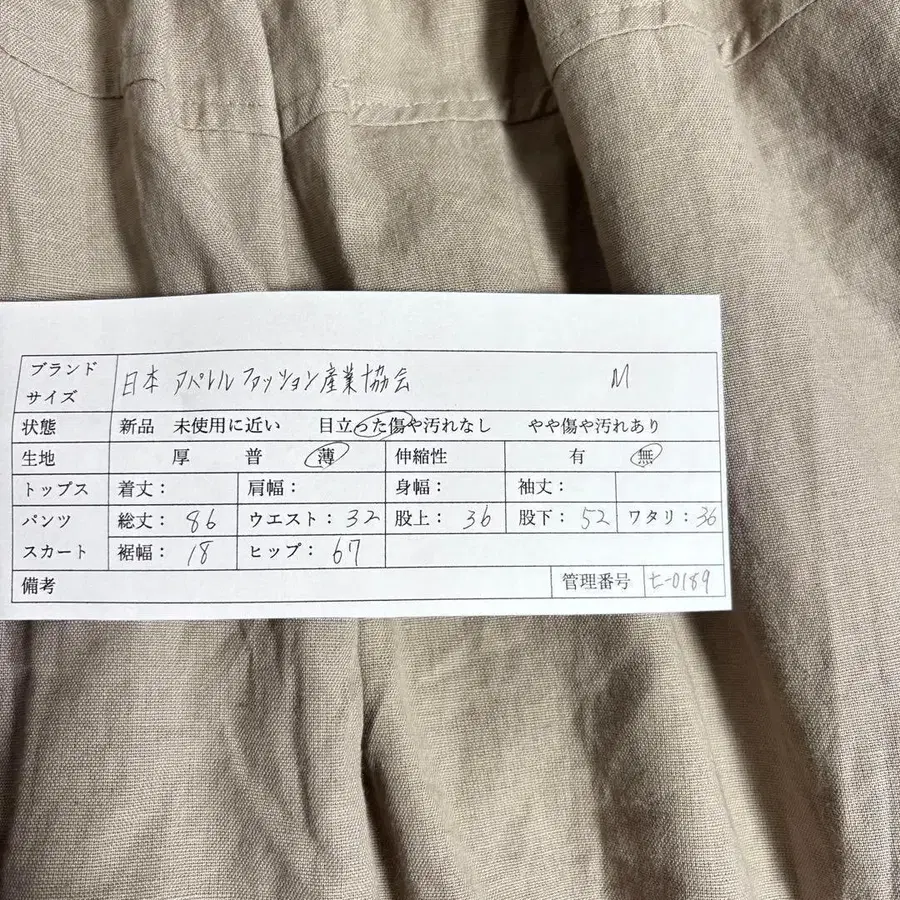 ブランド 日本アパレルファッション産業協会 M
サイズ
状態 新品 未使用に近い 目立った傷や汚れなし やや傷や汚れあり
生地 厚 普 薄 伸縮性 有 無
トップス 着丈： 肩幅： 身幅： 袖丈：
パンツ 総丈：86 ウエスト：32 股上：36 股下：52 ワタリ：36
スカート 裾幅：18 ヒップ：67
備考 管理番号 ヒ-0189